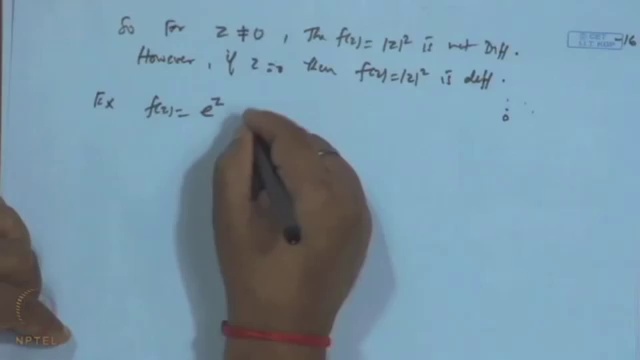 So For z ≠ 0, The f(z) = |z|² is not Diff.
However, if z = 0 then f(z) = |z|² is diff.
Ex f(z) = e^z
NPTEL